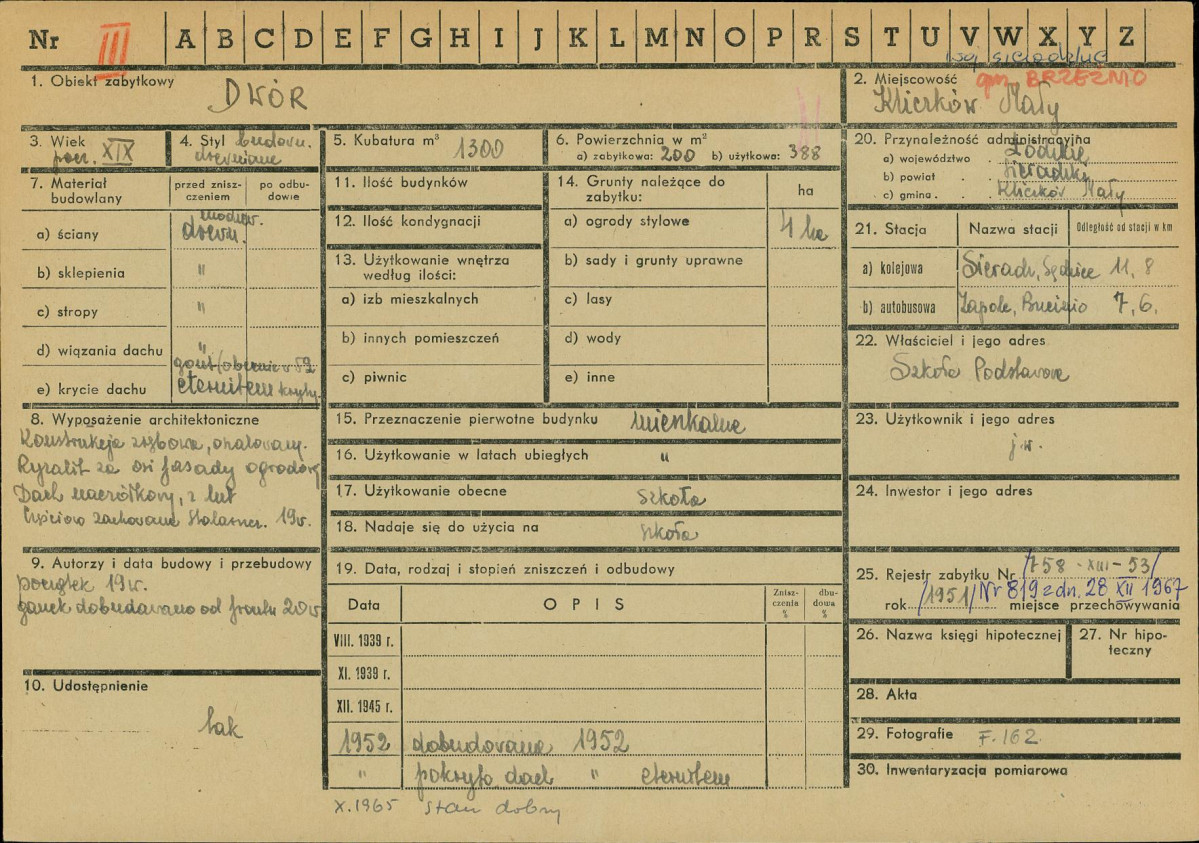 Nr III A B C D E F G H I J K L M N O P R S T U V W X Y Z
woj. sieradzkie
1. Obiekt zabytkowy
DWÓR
2. Miejscowość gm. BRZEŹNIO
Kliczków Mały
3. Wiek
pocz. XIX
4. Styl budown.
drewniane
5. Kubatura m³ 1300
6. Powierzchnia w m²
a) zabytkowa: 200 b) użytkowa: 388
20. Przynależność administracyjna
a) województwo . Łódzkie
b) powiat . . Sieradzki
c) gmina . . Kliczków Mały
7. Materiał budowlany
przed zniszczeniem
po odbudowie
a) ściany modrzew. drewn.
b) sklepienia "
c) stropy "
d) wiązania dachu "
e) krycie dachu gont (obecnie w 52 eternitem kryty.
11. Ilość budynków
12. Ilość kondygnacji
13. Użytkowanie wnętrza według ilości:
a) izb mieszkalnych
b) innych pomieszczeń
c) piwnic
14. Grunty należące do zabytku: ha
a) ogrody stylowe 4 ha
b) sady i grunty uprawne
c) lasy
d) wody
e) inne
21. Stacja Nazwa stacji Odległość od stacji w km
a) kolejowa Sieradz, Sędzice 11, 8
b) autobusowa Zapole, 7, 6.
22. Właściciel i jego adres
Szkoła Podstawowa
8. Wyposażenie architektoniczne
Konstrukcja zrębowa, oszalowany.
Ryzalit na osi fasady ogrodowej
Dach naczółkowy, z luf
Częściowo zachowana stolarka. 19 w.
15. Przeznaczenie pierwotne budynku mieszkalne
16. Użytkowanie w latach ubiegłych "
17. Użytkowanie obecne Szkoła
18. Nadaje się do użycia na szkoła
23. Użytkownik i jego adres
j.w.
24. Inwestor i jego adres
9. Autorzy i data budowy i przebudowy
początek 19 w.
ganek dobudowano od frontu 20 w
19. Data, rodzaj i stopień zniszczeń i odbudowy
Data OPIS Zniszczenia % dbudowa %
VIII. 1939 r.
XI. 1939 r.
XII. 1945 r.
1952 dobudowane 1952
" pokryto dach " eternitem
X.1965 stan dobry
25. Rejestr zabytku Nr /758-XIII-53/
rok /1951/ Nr 819 z dn. 28 XII 1967
miejsce przechowywania
26. Nazwa księgi hipotecznej
27. Nr hipoteczny
10. Udostępnienie
tak
28. Akta
29. Fotografie F. 162
30. Inwentaryzacja pomiarowa